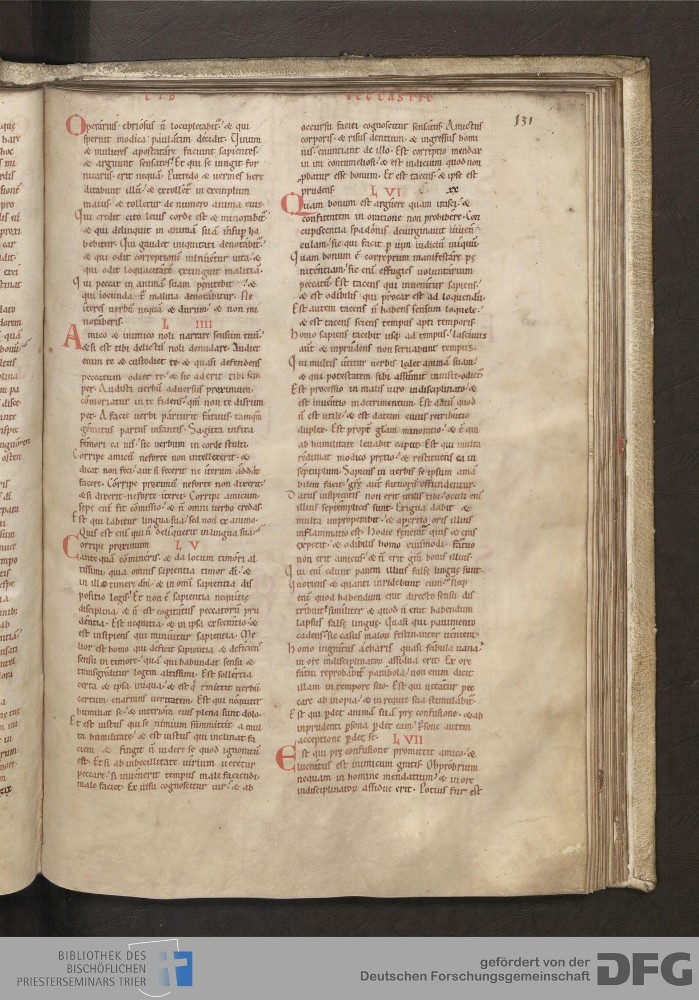 LIB
ECCLASTIC
131
Operarius ebriosus n̄ locupletabit᷑ & qui
spernit modica paulatim decidet. Vinum
& mulieres apostatare faciunt sapientes.
& arguunt sensatos. Et qui se iungit for
nicariis erit nequā. Putredo & vermes here
ditabunt illū. & extollet᷑ in exemplum
maius. & tolletur de numero anima eius.
Qui credit cito levis corde est & minorabit᷑
& qui delinquit in animā suā insup ha
bebitur. Qui gaudet iniquitati denotabit᷑.
& qui odit correptionē minuetur vita. &
qui odit loquacitatē extinguit malitiā.
Qui peccat in animā suam penitebit. &
qui iocunda᷑ malitia denotabitur. Ne
iteres verbū nequā & durum. & non mi
noraberis.
L IIII
Amico & inimico noli narrare sensum tuū.
& si est tibi delictū noli denudare. Audiet
enim te & custodiet te. & quasi defendens
peccatum odiet te. & sic aderit tibi sem
per. Audisti verbū adversus proximum.
cōmoriatur in te fidens. qm̄ non te disrum
pet. A facie verbi parturit fatuus. tamquā
gemitus partus infantis. Sagitta infixa
femori ca nis. sic verbum in corde stulti.
Corripe amicū neforte non intellexerit. &
dicat non feci. aut si fecerit ne iterum addat
facere. Corripe proximū neforte non dixerit.
& si dixerit neforte iteret. Corripe amicum.
sepe enī fit cōmissio. & n̄ omni verbo credas.
Est qui labitur lingua sua. sed non ex animo.
Quis est enī qui n̄ deliquerit in lingua sua.
L V
Corripe proximum
antequā cōmineris. & da locum timori al
tissimi. quia omnis sapientia timor dī. &
in illa timere dm̄. & in omī sapientia dis
positio legis. Et non ē sapientia nequitię
disciplina. & n̄ est cogitatus peccatorū pru
dentia. Est nequitia. & in ipsa execratio. &
est insipiens qui minuitur sapientia. Me
lior est homo qui deficit sapientia & deficiens
sensu in timore. quā qui habundat sensu &
transgreditur legem altissimi. Est sollertia
certa & ipsa iniqua. & est q emittit verbū
certum enarrans veritatem. Est qui nequiter
humiliat se. & interiora eius plena sunt dolo.
Et est iustus qui se nimium summittit a mul
ta humilitate. & est iustus qui inclinat fa
ciem & fingit n̄ videre se quod ignoratū
est. Et si ab inbecillitate virium vetetur
peccare. si invenerit tempus male faciendi.
male faciet. Ex visu cognoscitur vir. & ab
occursu faciei cognoscitur sensatus. Amictus
corporis & risus dentium. & ingressus homi
nis. enuntiant de illo. Est correptio mendax
in ira contumeliosi. & est iudicium quod non
pbatur esse bonum. Et est tacens & ipse est
prudens.
L VI
xx
Quam bonum est arguere quam irasci. &
confitentem in oratione non prohibere. Con
cupiscentia spadonis devirginavit iuven
culam. sic qui facit p vim iudiciū iniquū.
Quam bonum ē correptum manifestare pe
nitentiam. sic enī effugies voluntarium
peccatū. Est tacens qui invenitur sapiens.
& est odibilis qui procax est ad loquendū.
Est autem tacens n̄ habens sensum loquele.
& est tacens sciens tempus apti temporis.
Homo sapiens tacebit usq ad tempus. lascivus
autē & imprudens non servabunt tempus.
Qui multis utitur verbis ledet animā suam.
& qui potestatem sibi assumit iniuste odiet᷑.
Est processio in malis viro indisciplinato. &
est inventio in detrimentum. Est datū quod
n̄ est utile. & est datum cuius retributio
duplex. Est propt glam minoratio. & ē qui
ab humilitate levabit caput. Est qui multa
redimat modico precio. & restituens ea in
septuplum. Sapiens in verbis se ipsum amā
bilem facit. grę autē fatuorū effundentur.
Datus insipientis non erit utilis tibi. oculi enī
illius septemplices sunt. Exigua dabit &
multa improperabit. & apertio oris illius
inflammatio est. Hodie fenerat᷑ quis & cras
expetit. & odibilis homo eiusmodi. fatuo
non erit amicus. & n̄ erit gra bonis illius.
Qui enī edunt panem illius falsę linguę sunt.
Quotiens & quanti irridebunt eum. Neq
enī quod habendum erat directo sensu dis
tribuit. similiter & quod n̄ erat habendum
Lapsus falsę linguę. quasi qui pavimento
cadens. sic casus malorū festinanter venient.
Homo ingratus acharis quasi fabula vana.
in ore indisciplinatorū assidua erit. Ex ore
fatui reprobabit᷑ parabola. non enim dicit
illam in tempore suo. Est qui vetatur pec
care ab inopia. & in requie sua stimulabit᷑.
Est qui pdet animā suā prę confusione. & ab
inprudenti psona pdet eam. Psone autem
acceptione pdet se.
L VII
Est qui prę confusione promittit amico. &
lucratus est inimicum gratis. Obprobrium
nequam in homine mendatium. & in ore
indisciplinatorū assidue erit. Potius fur est
BIBLIOTHEK DES
BISCHÖFLICHEN
PRIESTERSEMINARS TRIER
gefördert von der
Deutschen Forschungsgemeinschaft DFG